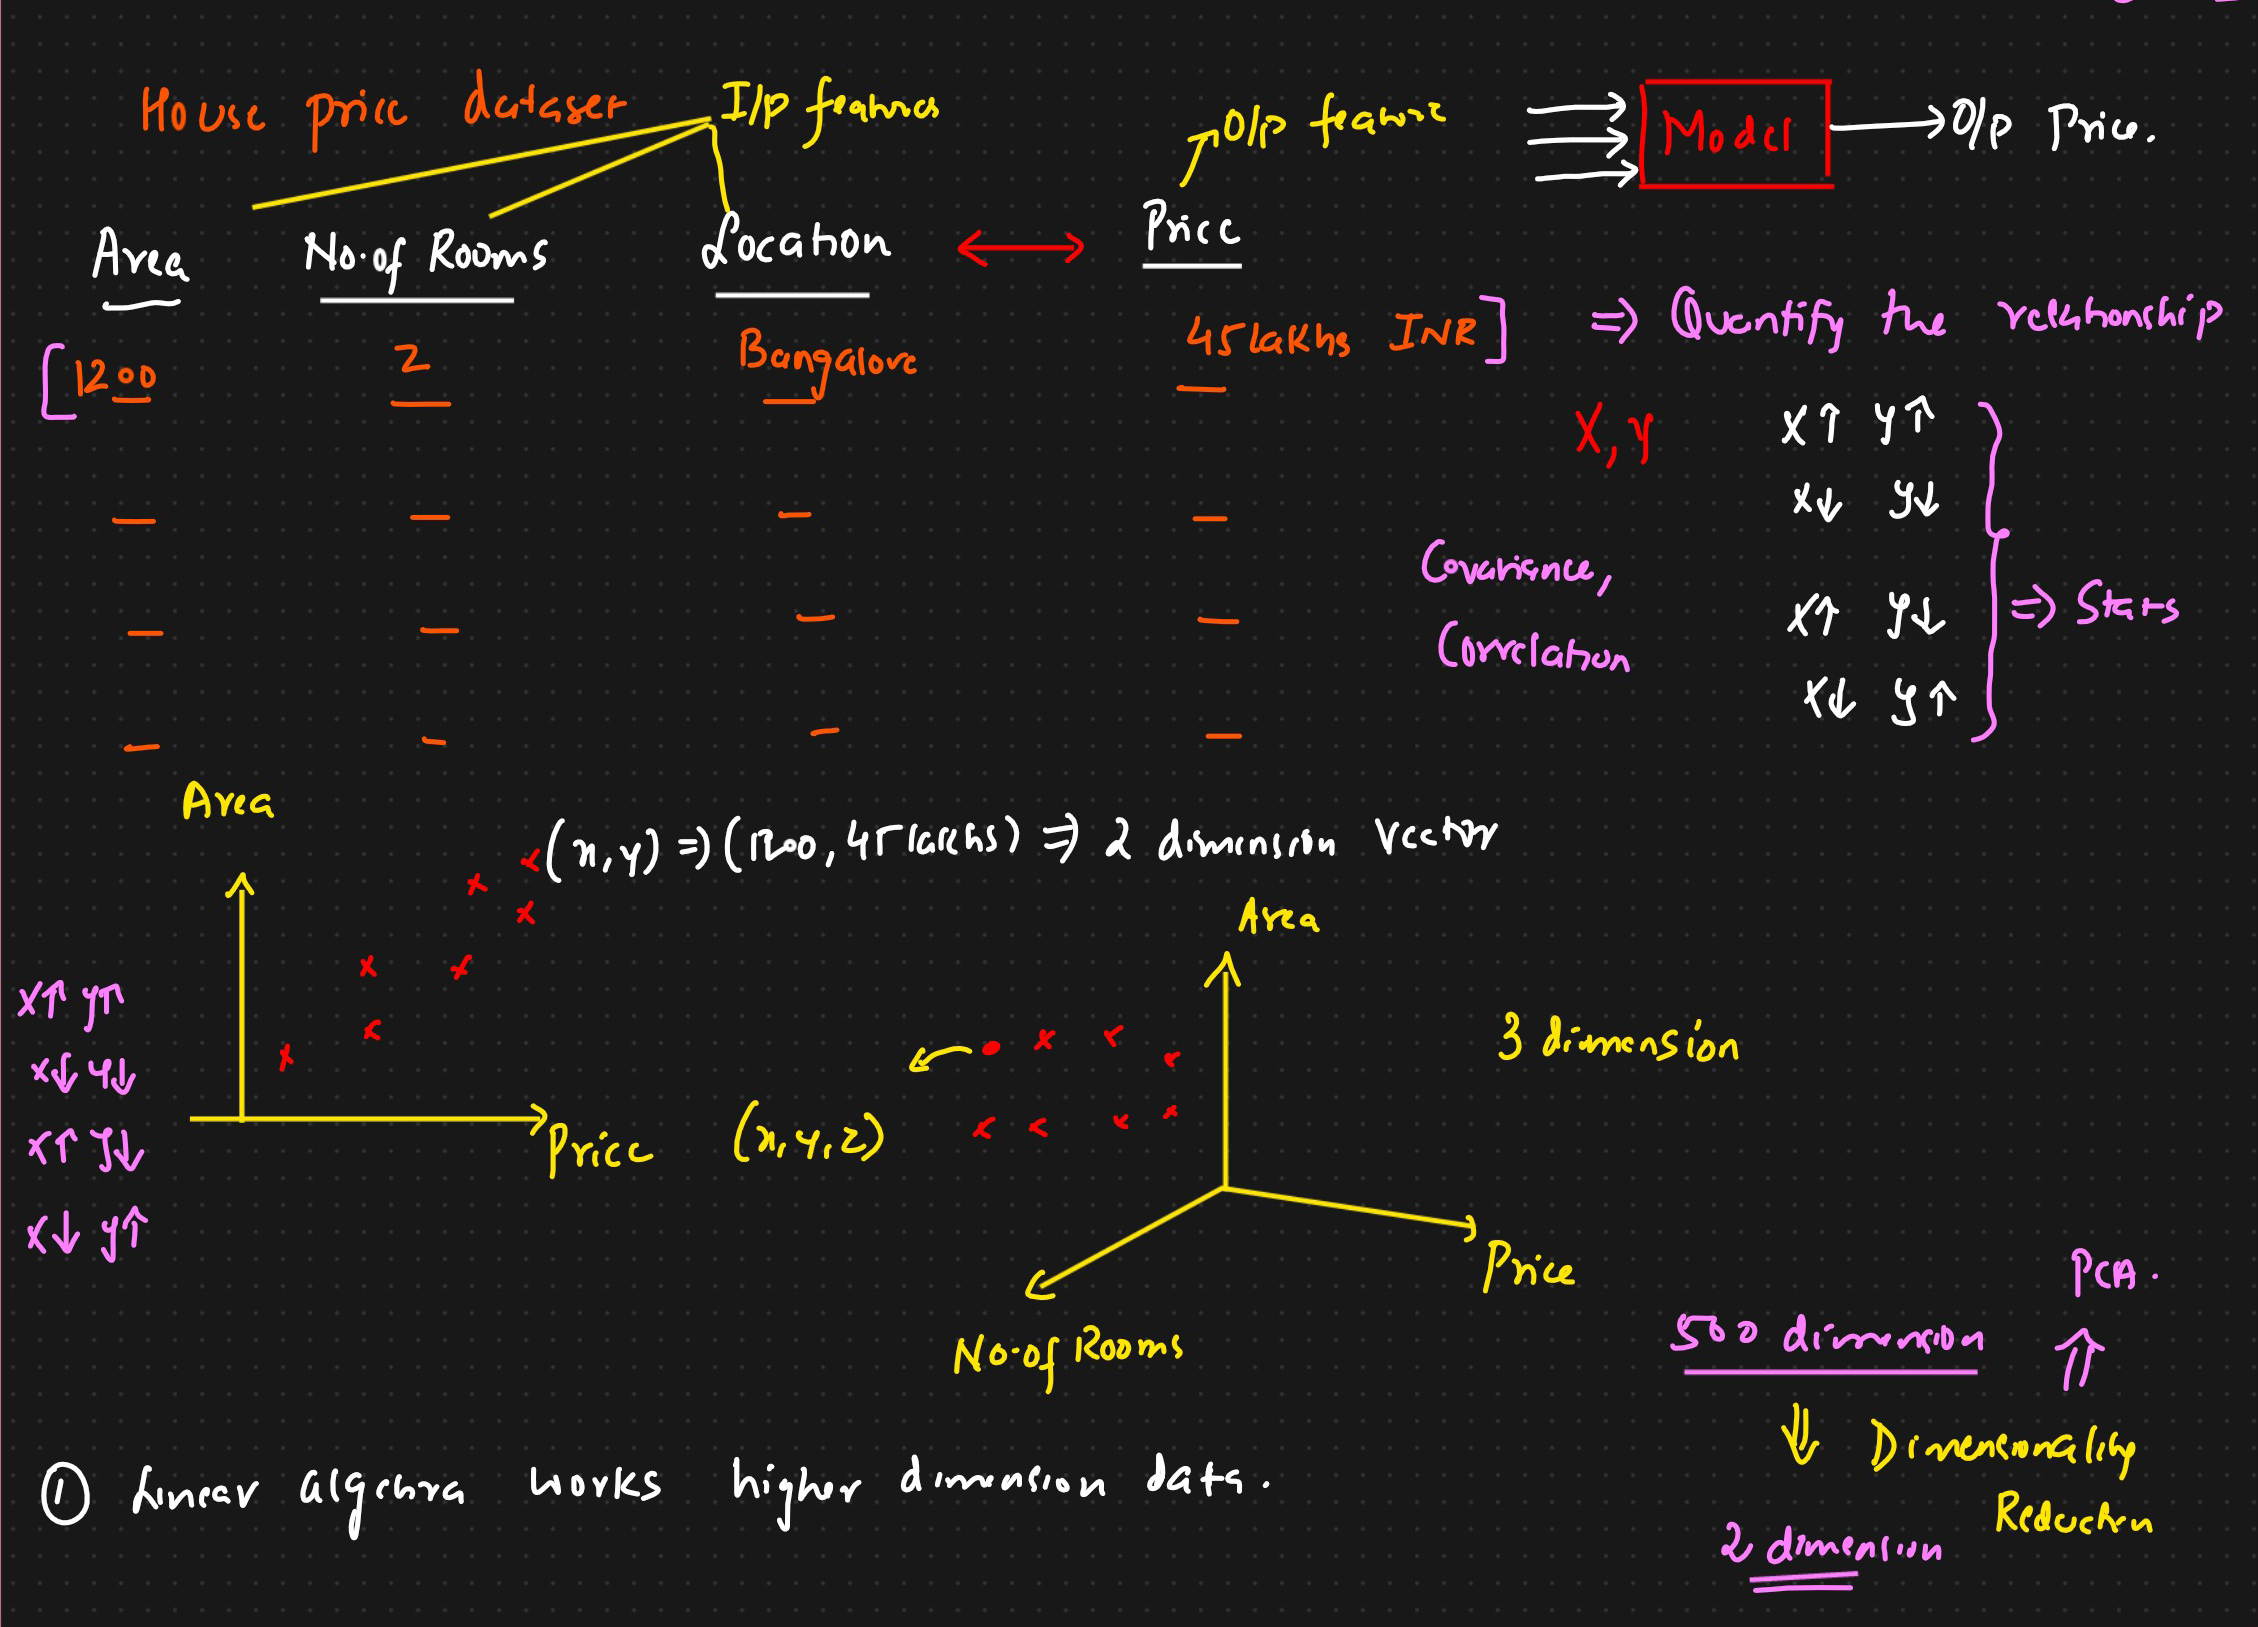 House price dataset
I/p features
O/p feature
Model
O/p Price.
Area
No. of Rooms
Location
Price
[1200
2
Bangalore
45 lakhs INR]
=> Quantify the relationship
X, y
X↑ y↑
X↓ y↓
X↑ y↓
X↓ y↑
Covariance,
Correlation
=> Stats
Area
(x, y) => (1200, 45 lakhs) => 2 dimension vector
X↑ y↑
X↓ y↓
X↑ y↓
X↓ y↑
Price
Area
(x, y, z)
3 dimension
Price
No. of Rooms
PCA.
500 dimension
Dimensionality
Reduction
2 dimension
① Linear algebra works higher dimension data.